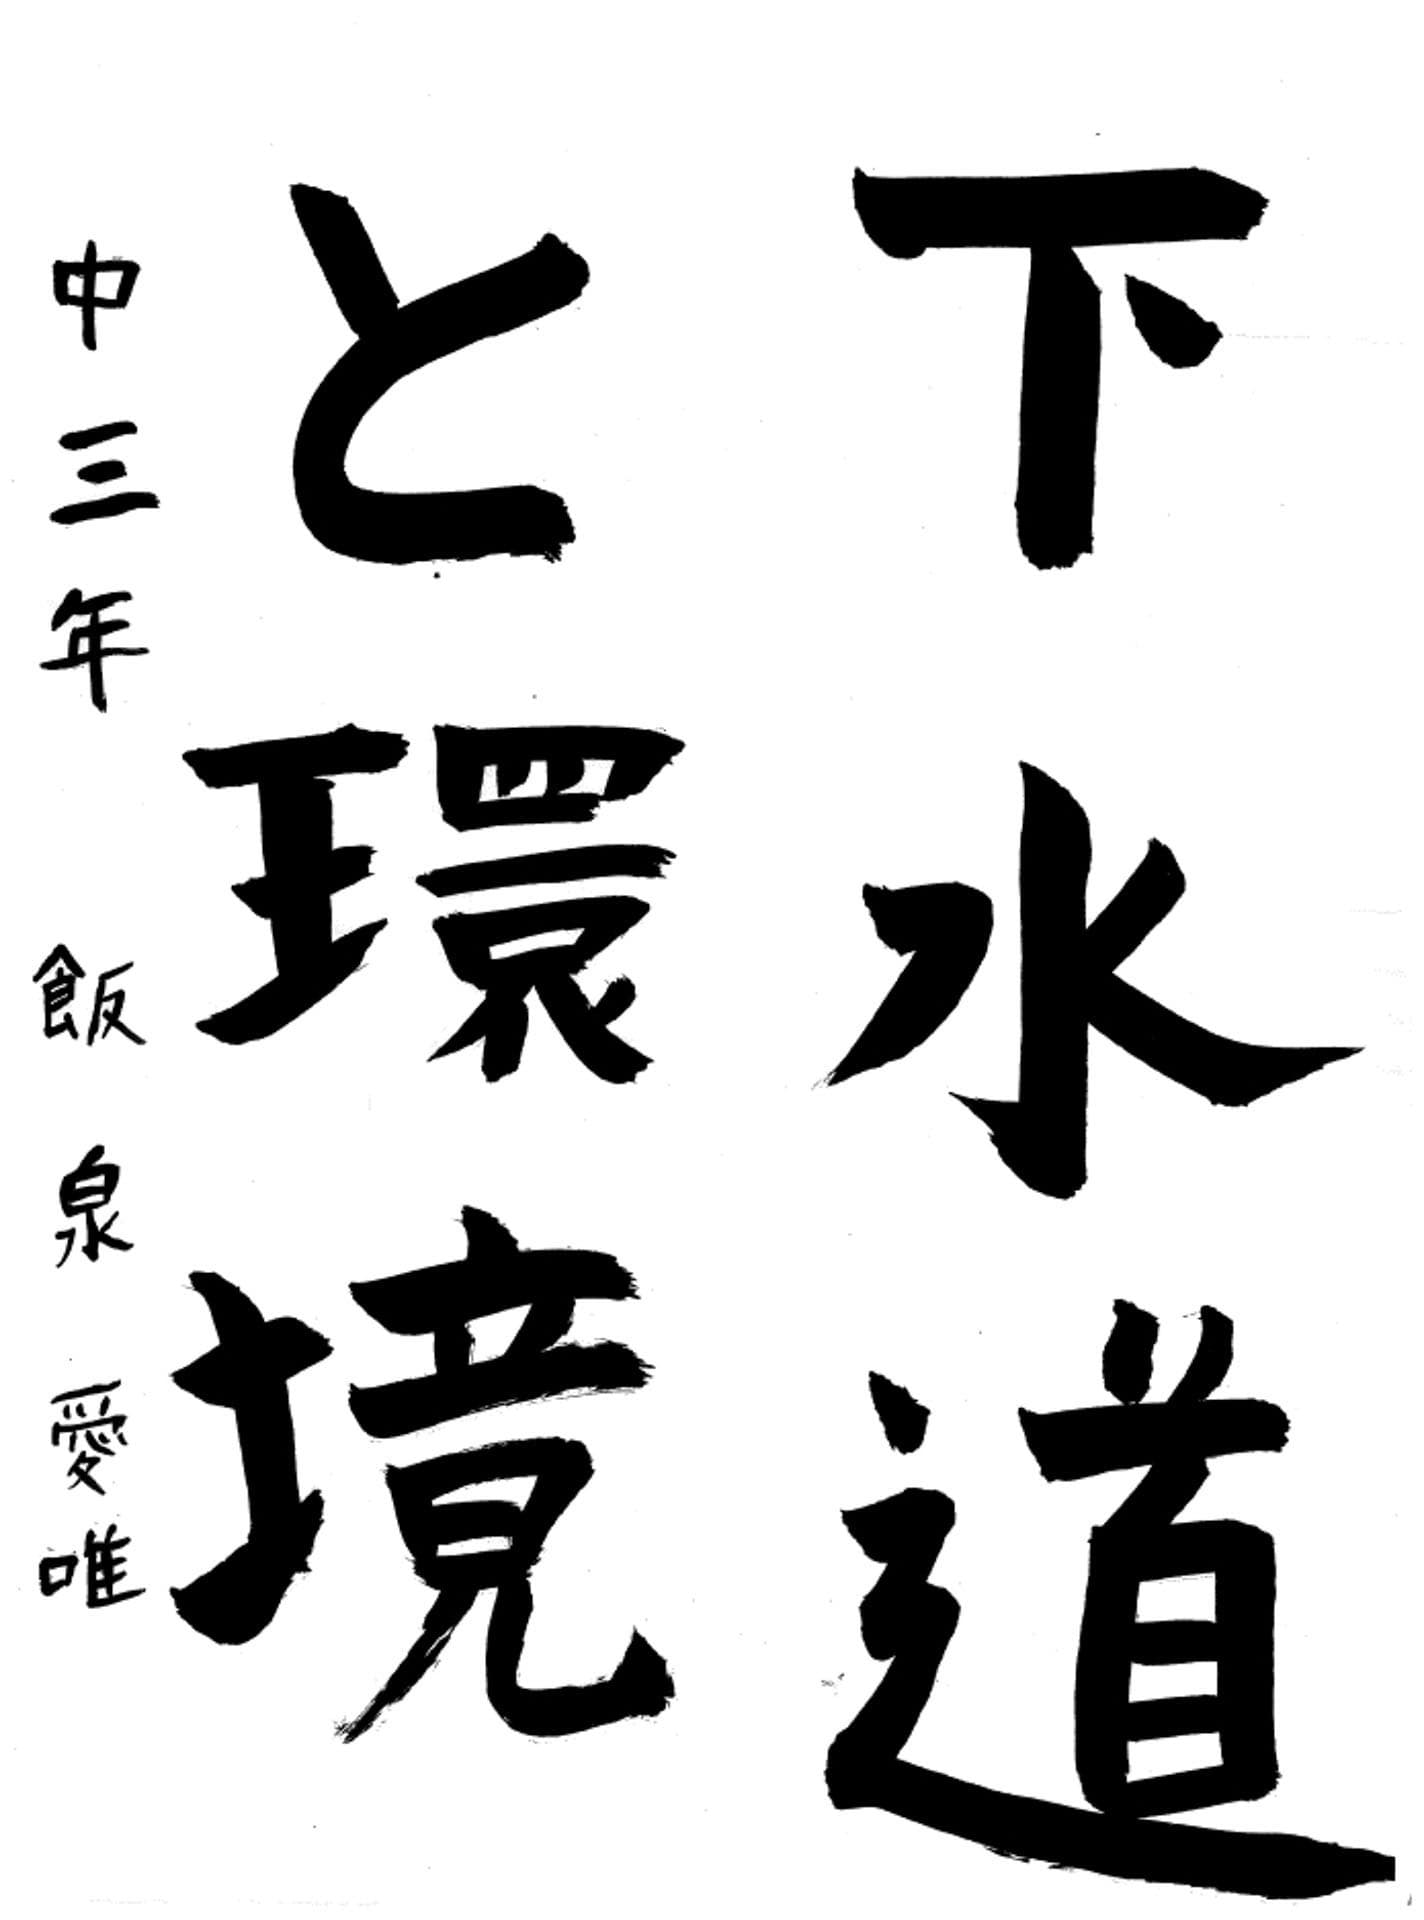 下水道
と環境
中三年 飯泉愛唯